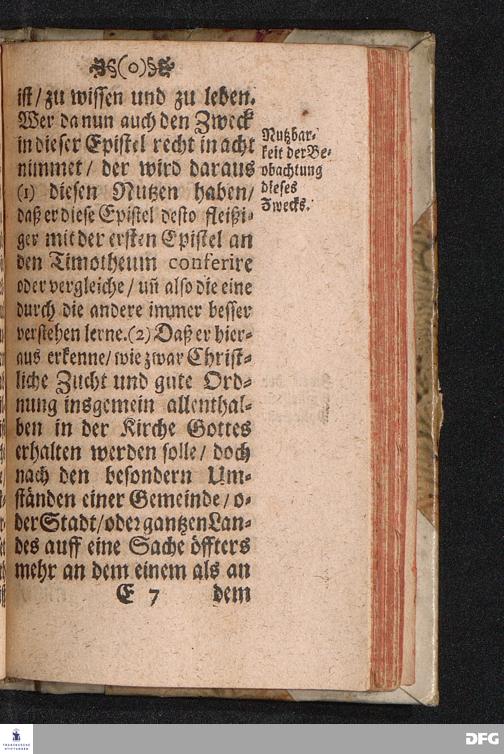 (o)
ist/ zu wissen und zu leben.
Wer da nun auch den Zweck
in dieser Epistel recht in acht
nimmet/ der wird daraus
(1) diesen Nutzen haben/
daß er diese Epistel desto fleißi-
ger mit der ersten Epistel an
den Timotheum conferire
oder vergleiche/ uñ also die eine
durch die andere immer besser
verstehen lerne. (2) Daß er hier-
aus erkenne/ wie zwar Christ-
liche Zucht und gute Ord-
nung insgemein allenthal-
ben in der Kirche Gottes
erhalten werden solle/ doch
nach den besondern Um-
ständen einer Gemeinde/ o-
der Stadt/ oder gantzen Lan-
des auff eine Sache öffters
mehr an dem einem als an
E 7 dem
Nutzbar-
keit der Be-
obachtung
dieses
Zwecks.
FRANCKESCHE
STIFTUNGEN
DFG